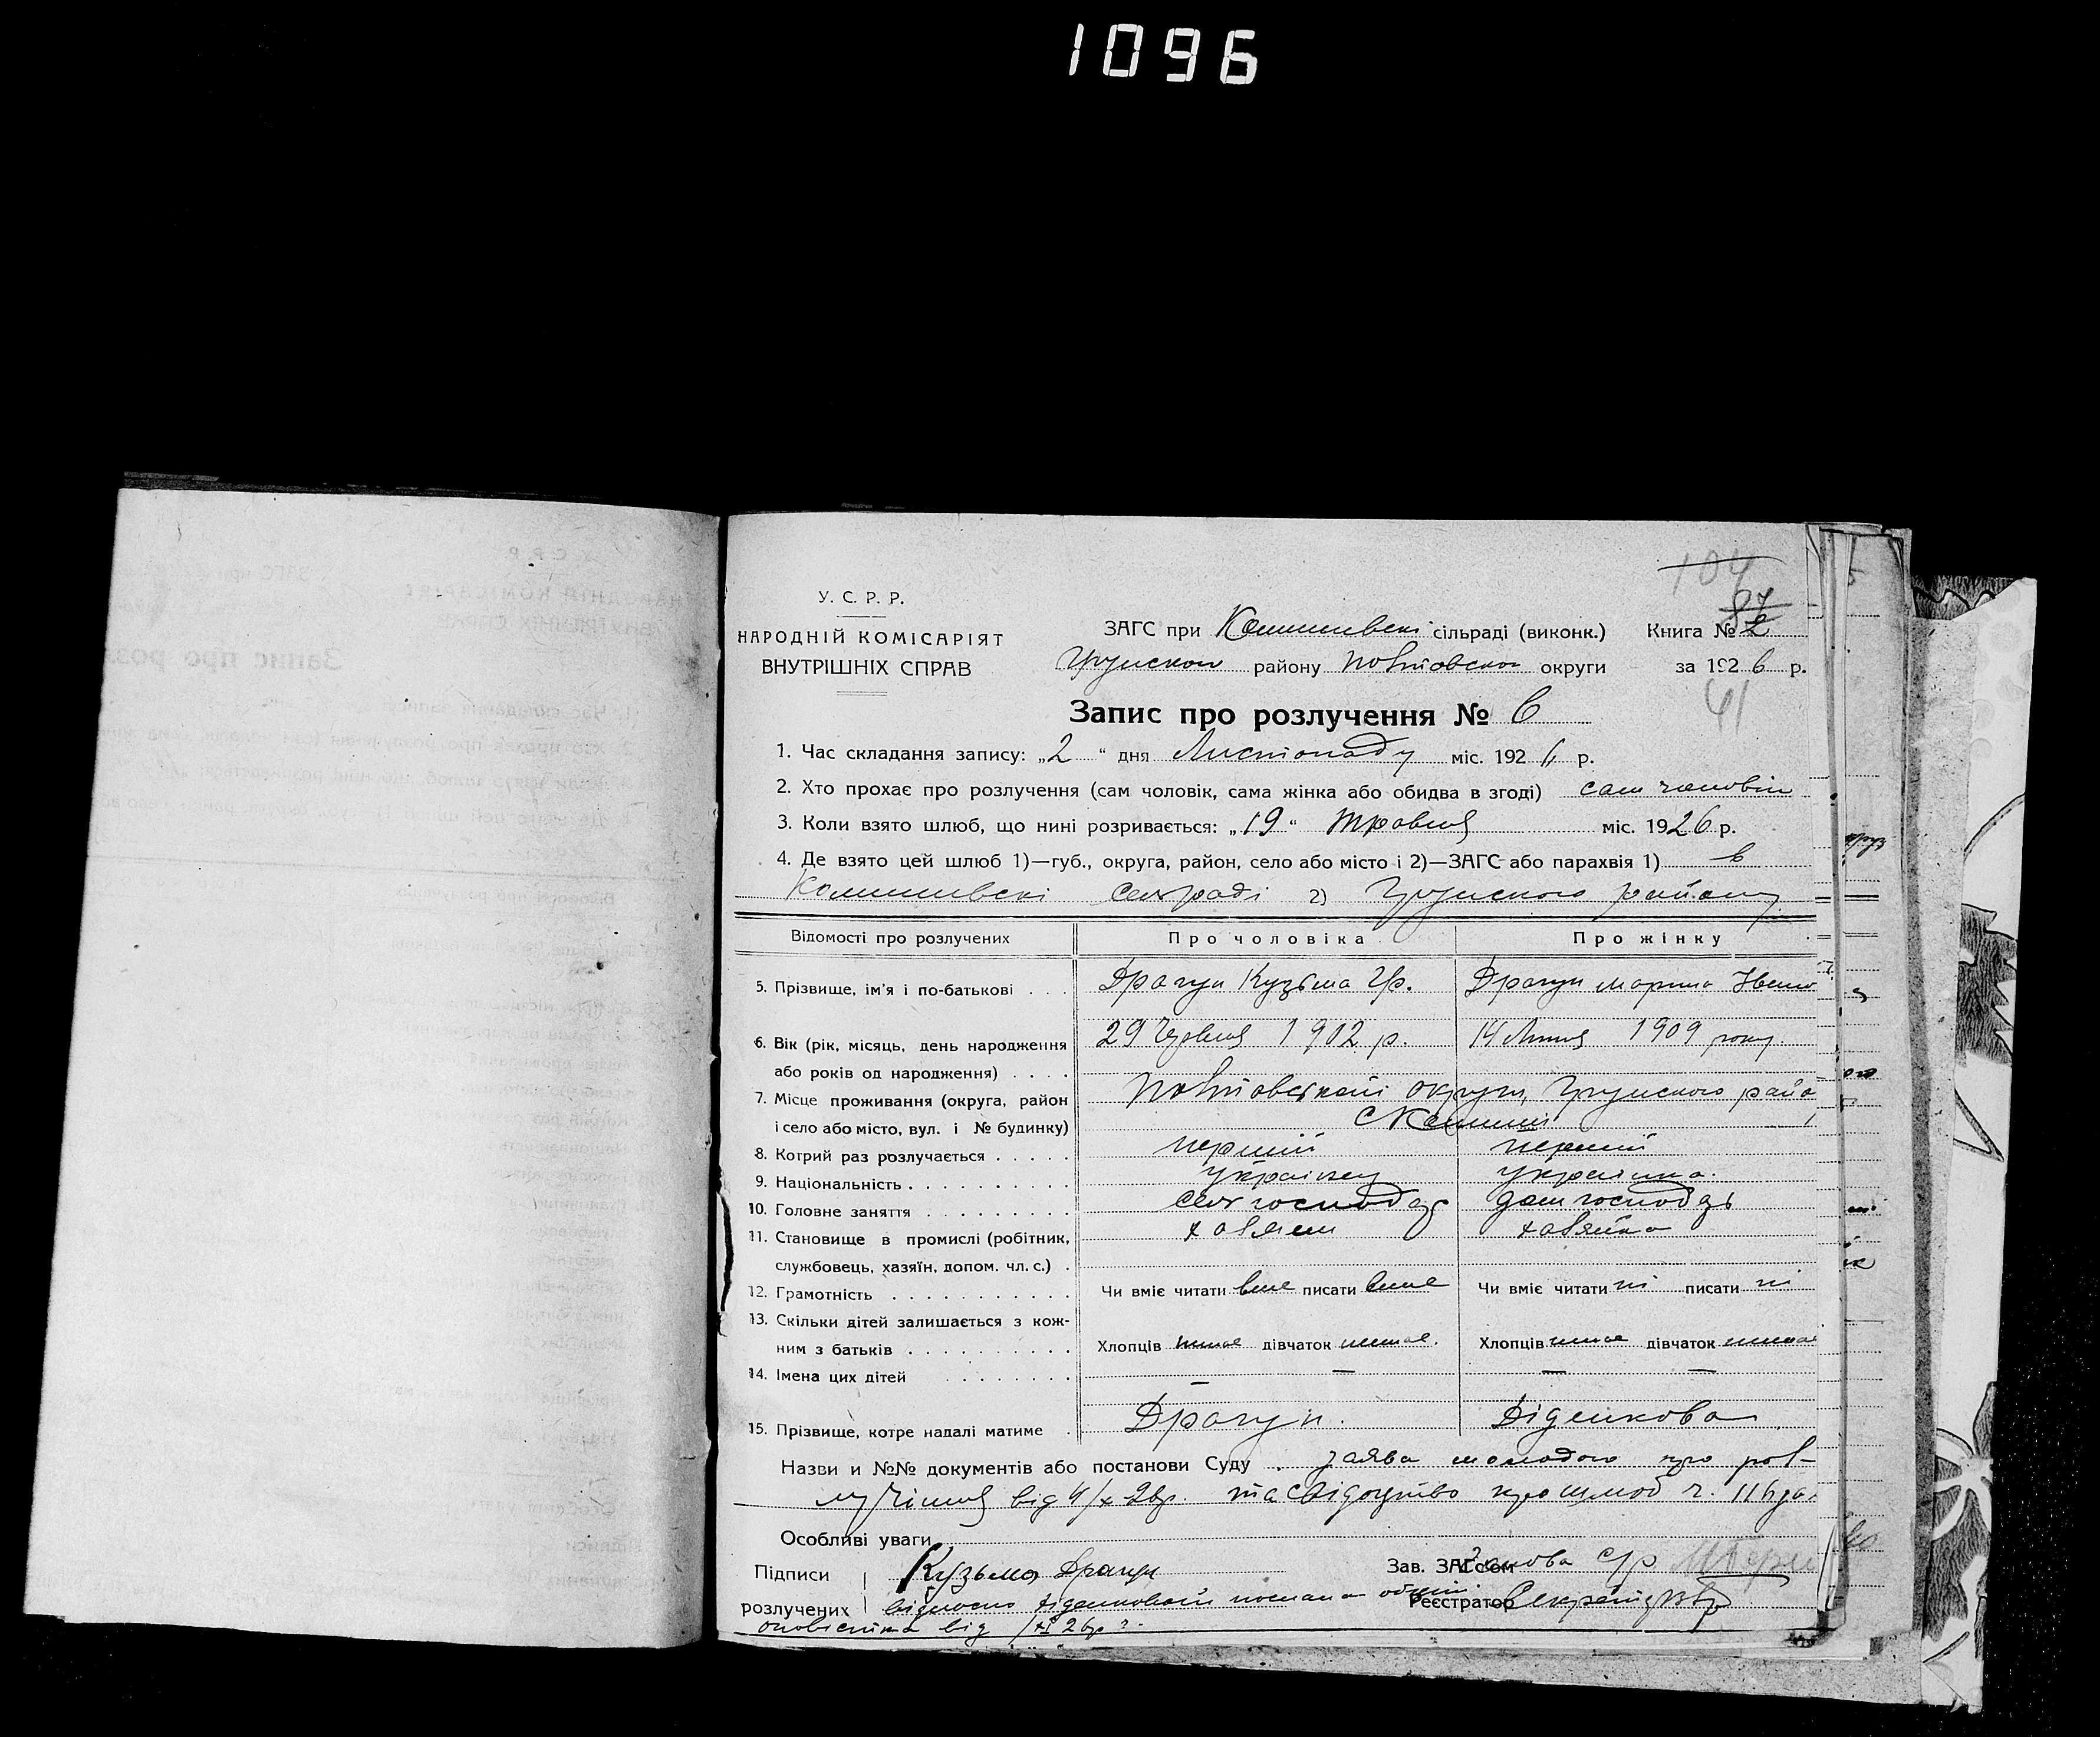 1096
104
87
У. С. Р. Р.
НАРОДНІЙ КОМІСАРІЯТ
ВНУТРІШНІХ СПРАВ
ЗАГС при Комишивскі сільраді (виконк.) Книга № 2
Грунскои району Полтовскои округи за 1926 р.
41
Запис про розлучення № 6
1. Час складання запису: „2“ дня Листопаду міс. 1926 р.
2. Хто прохає про розлучення (сам чоловік, сама жінка або обидва в згоді) сам чоловік
3. Коли взято шлюб, що нині розривається: „19“ Травня міс. 1926 р.
4. Де взято цей шлюб 1)—губ., округа, район, село або місто і 2)—ЗАГС або парахвія 1) в
Комишивскі селраді 2) Грунского району
Відомості про розлучених Про чоловіка Про жінку
5. Прізвище, ім'я і по-батькові . . . Драгун Кузьма Гр. Драгун Марина Івано
6. Вік (рік, місяць, день народження 29 Червня 1902 р. 14 Липня 1909 року
або років од народження) . . . .
7. Місце проживання (округа, район Полтовської округи, Грунского райо
і село або місто, вул. і № будинку) с Комиші
8. Котрий раз розлучається . . . . . перший перший
9. Національність . . . . . . . . . . українец українка.
10. Головне заняття . . . . . . . . . сел господар дом господар
11. Становище в промислі (робітник, хазяін хазяйка
службовець, хазяїн, допом. чл. с.) .
12. Грамотність . . . . . . . . . . . Чи вміє читати вміє писати вміє Чи вміє читати ні писати ні
13. Скільки дітей залишається з кож-
ним з батьків . . . . . . . . . . Хлопців немає дівчаток немає. Хлопців немає дівчаток немає
14. Імена цих дітей . . . . . . . . — — — —
15. Прізвище, котре надалі матиме . Драгун. Діденкова
Назви и №№ документів або постанови Суду . заява молодого про роз-
лучіння від 4/х 26р. та свідоцтво про шлюб ч.
Особливі уваги
Підписи Кузьма Драгун Зав. ЗАГСом Голова с/р
розлучених відносно Діденковой послана Реєстратор Секретар
оповістка від